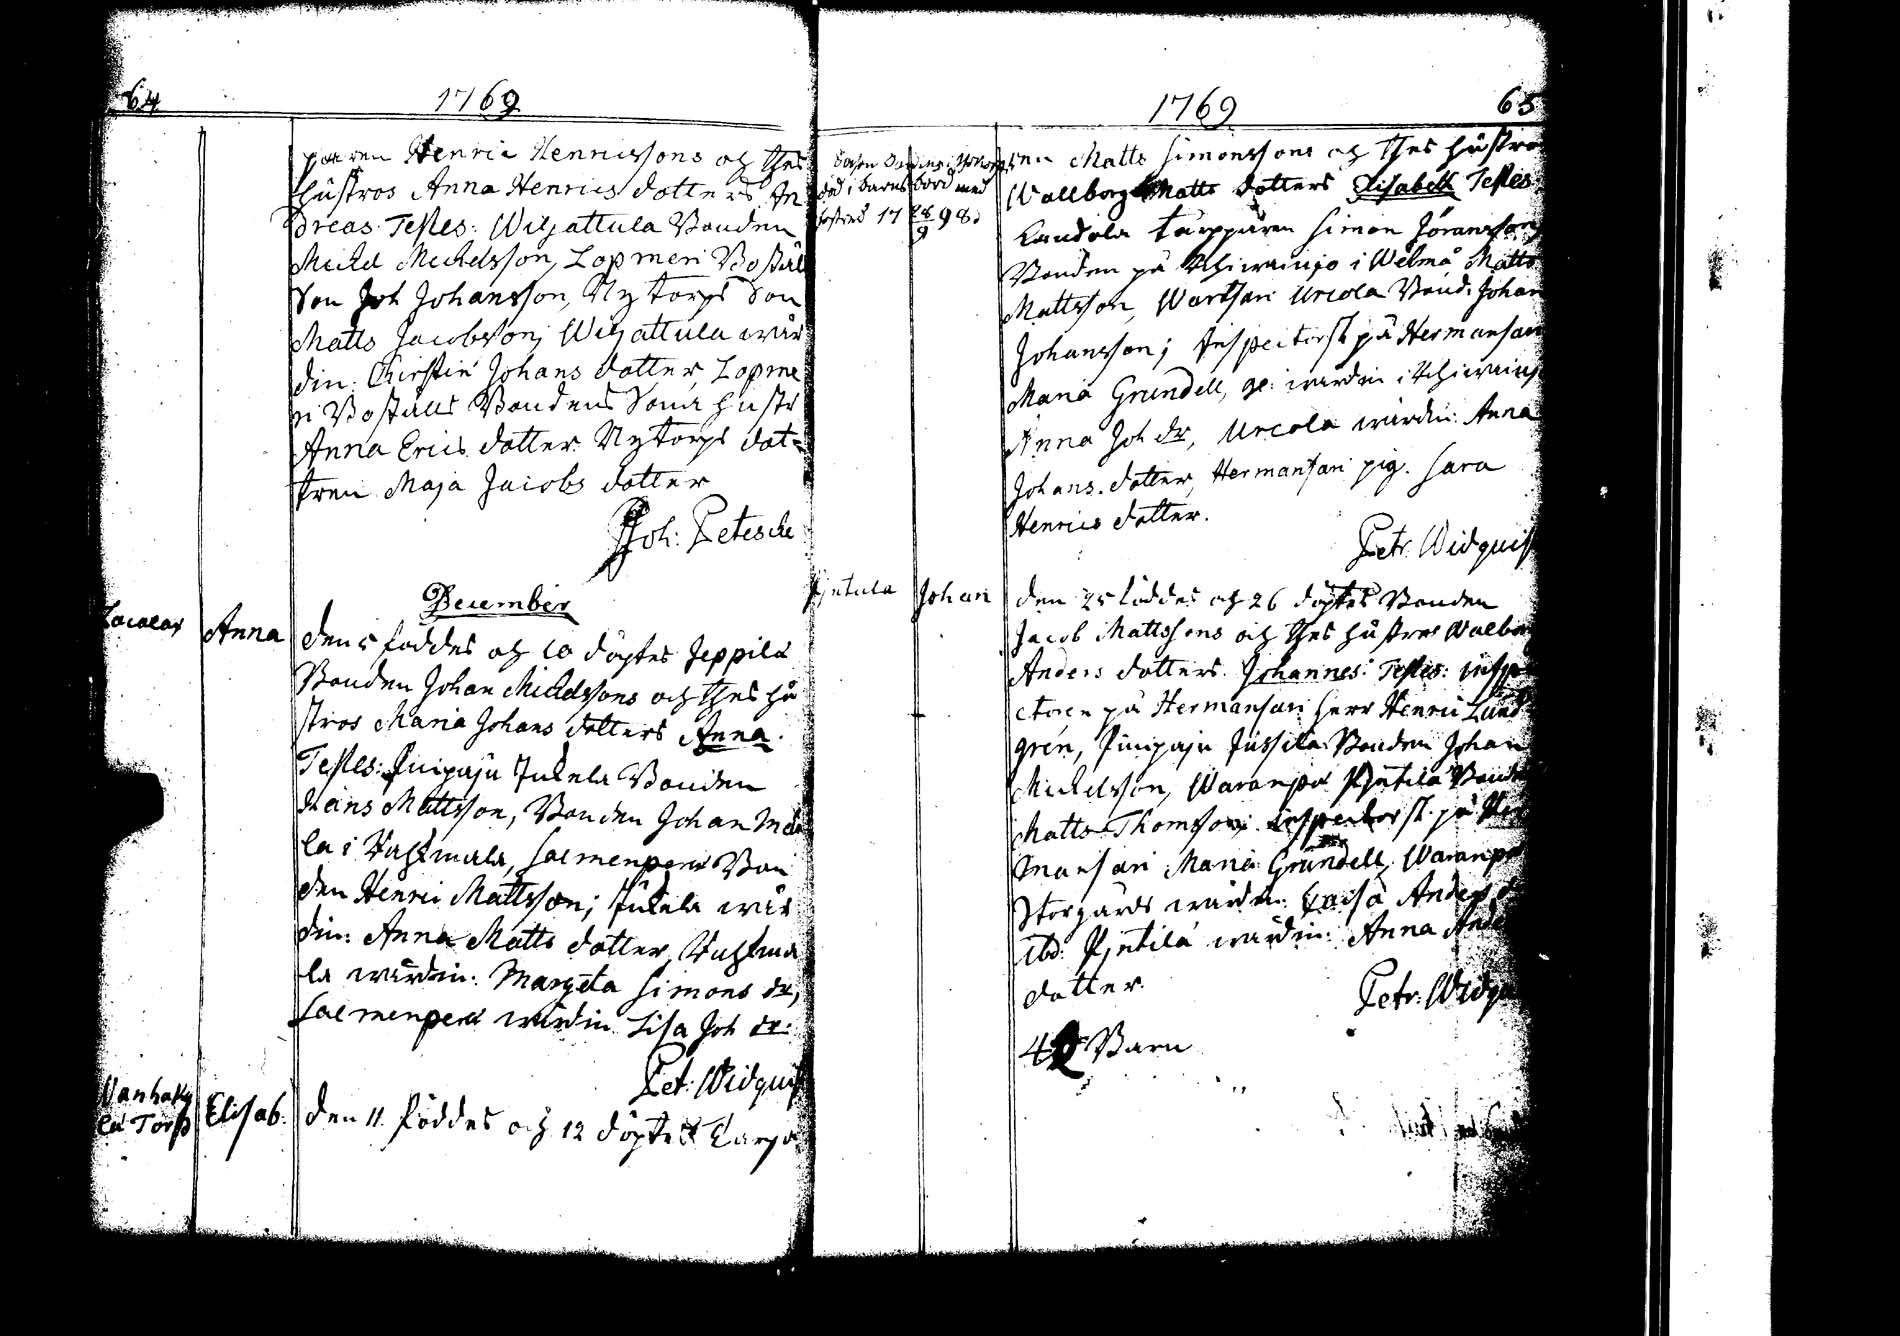 64
1769
paren Henric Henricssons och thes
hustros Anna Henrics dotters An
dreas. Testes: Wiljattula Bonden
Michel Michelsson, Lopmeri Bostäl
Son Joh Johansson, Nytorps Son
Matts Jacobsson, Wiljattula wär
din: Chirstin Johans dotter, Lopme
ri Boställs Bondens Sona hustr
Anna Erics dotter. Nytorps dot=
tren Maja Jacobs dotter
Joh: Peteche
December
Anna
den 5 foddes och 10 döptes Jeppilä
Bonden Johan Michelssons och thes hu
stros Maria Johans dotters Anna.
Testes: Punpaju Juckela Bonden
Hans Mattsson, Bonden Johan
la i, Salmenperä Bon
den Henric Mattsson; Juckela wär
din: Anna Matts dotter,
la wärdin: Margeta Simons dr,
Salmenperä wärdin Lisa Joh dr:
Pet: Widquist
Wanhaky
lä Torp
Elisab.
den 11. föddes och 12 döptes
1769
65
död i barns börd med
17 28/9 98.
Matts Simonssons och thes hustro
Wallborg Matts dotters Elisabeth Testes:
Torpparen Simon Jöransson,
Bonden på i Wilmå Matts
Mattsson, Wartsari Urcola Bond: Johan
Johansson; Inspectorsk på Hermansari
Maria Grundell, wärdin i
Anna Joh dr, Urcola wärdin: Anna
Johans. dotter, Hermansari pig. Sara
Henrics dotter.
Petr: Widquist
Pjntila
Johan
den 25 föddes och 26 döptes Bonden
Jacob Mattssons och thes hustros Walborg
Anders dotters. Johannes: Testes: insp
ctoren på Hermansari herr Henric Lund
gren, Punpaju Jussila Bonden Johan
Michelsson, Waranpä Pjntilä Bonde
Matts Thomsson; inspectorsk. på Her
mansari Maria Grundell, Waranpä
Storgårds wärdin: Caisa Anders d
ibd. Pjntilä wärdin: Anna Anders
dotter.
Petr: Widqu
42 Barn